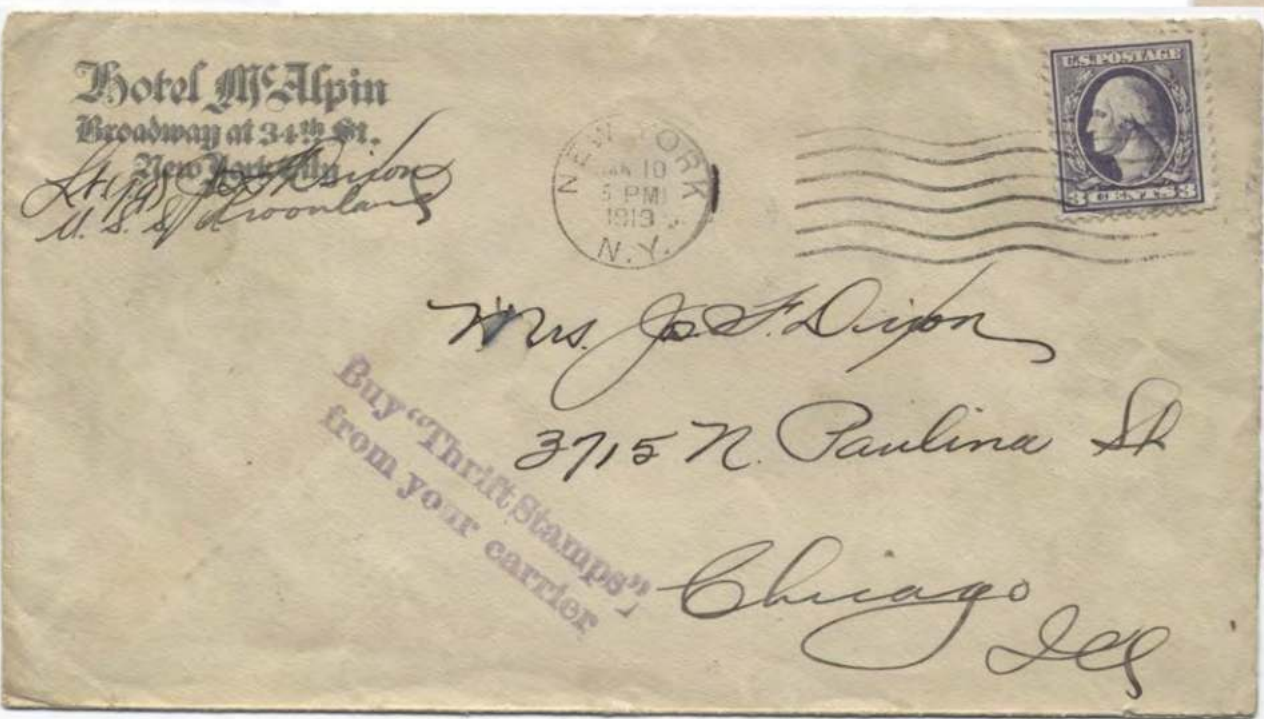 Hotel McAlpin
Broadway at 34th St.
New York City
Dixon
U. S. S. Kroonland
NEW YORK
JAN 10
5 PM
1919
N.Y.
U.S. POSTAGE
3 CENTS 3
Mrs. Jo. F. Dixon
3715 N. Paulina St
Chicago
Ill
Buy "Thrift Stamps",
from your carrier